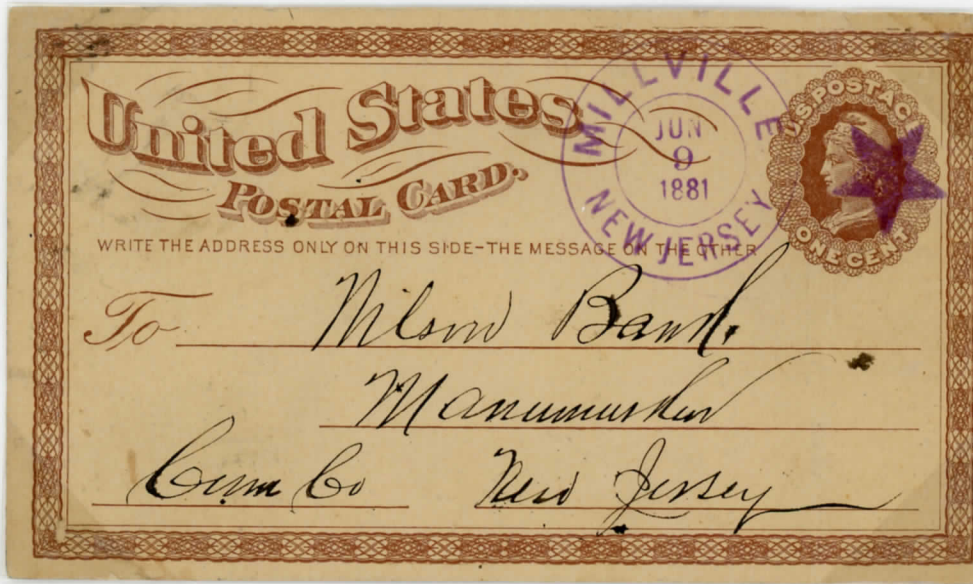 United States
POSTAL CARD.
MILLVILLE
JUN
9
1881
NEW JERSEY
U.S. POSTAGE
ONE CENT
WRITE THE ADDRESS ONLY ON THIS SIDE-THE MESSAGE ON THE OTHER
To
Manumuskin
Cum Co New Jersey